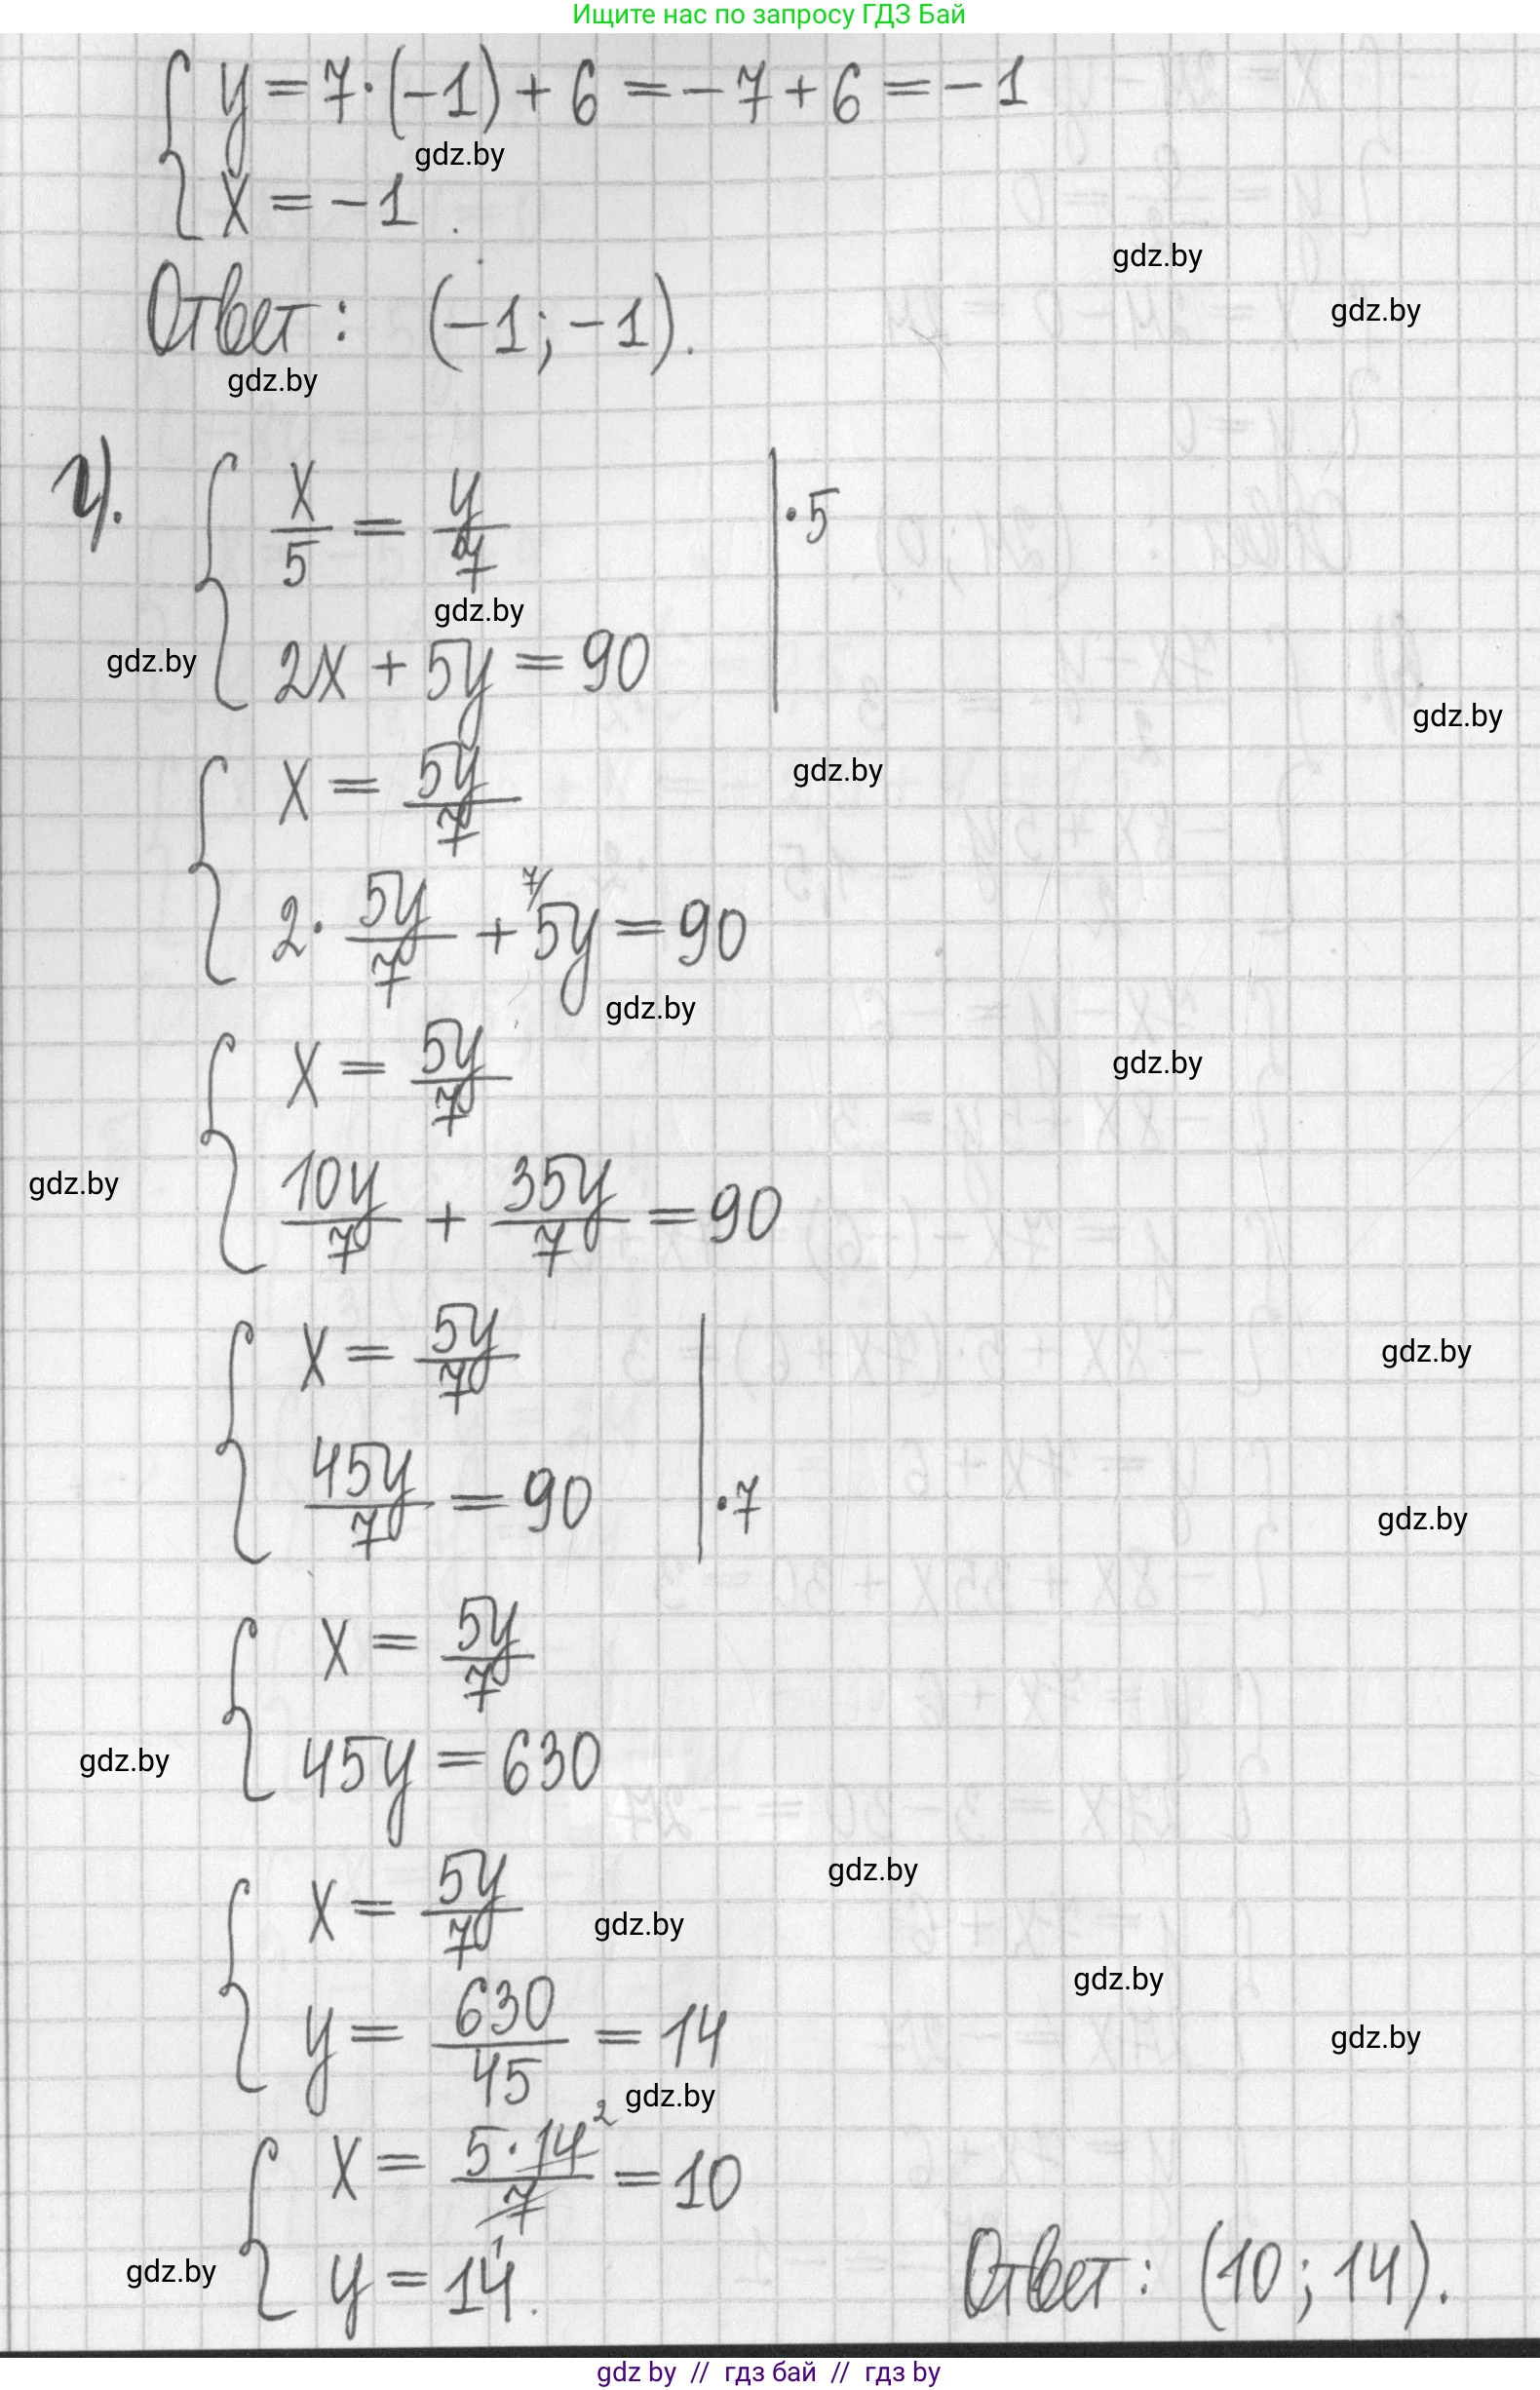 Ищите нас по запросу ГДЗ Бай
y = 7·(-1) + 6 = -7 + 6 = -1
gdz.by
x = -1.
gdz.by
gdz.by
Ответ: (-1; -1).
gdz.by
г).
x/5 = y/7 | ·5
gdz.by
gdz.by
2x + 5y = 90
gdz.by
gdz.by
x = 5y/7
2· 5y/7 + 7/ 5y = 90
gdz.by
gdz.by
x = 5y/7
gdz.by
10y/7 + 35y/7 = 90
gdz.by
x = 5y/7
45y/7 = 90 | ·7
gdz.by
x = 5y/7
45y = 630
gdz.by
gdz.by
x = 5y/7
gdz.by
gdz.by
y = 630/45 = 14
gdz.by
gdz.by
x = 5·14 2/7 1 = 10
y = 14.
gdz.by
Ответ: (10; 14).
gdz by // гдз бай // гдз by